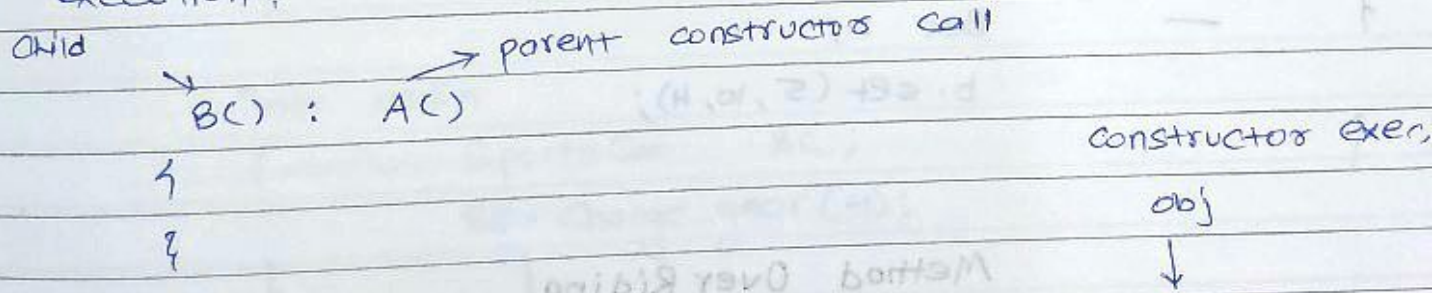 Child
→ parent constructor call
B() : A()
constructor exec,
{
obj
}
↓